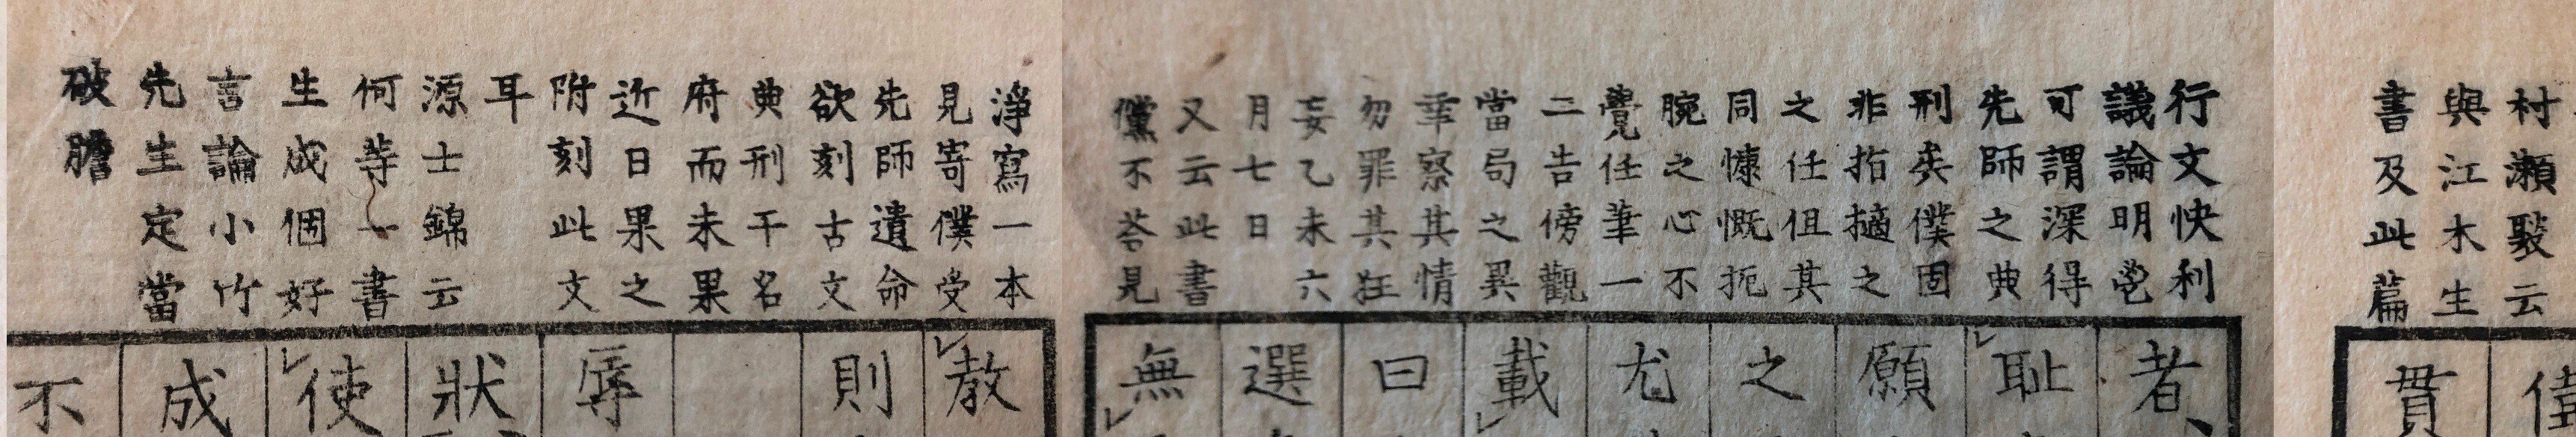 村瀬㲄云
與江木生
書及此篇
行文快利
議論明鬯
可謂深得
先師之典
刑矣僕固
非指擿之
之任但其
同慷慨扼
腕之心不
覺任筆一
二告傍觀
當局之異
幸察其情
勿罪其狂
妄乙未六
月七日
又云此書
儻不荅見
淨寫一本
見寄僕受
先師遺命
欲刻古文
典刑干名
府而未果
近日果之
附刻此文
耳
源士錦云
何等一書
生成個好
言論小竹
先生定當
破膽
貫
者
耻
願
之
尤
載
曰
選
無
教
則
辱
狀
使
成
不